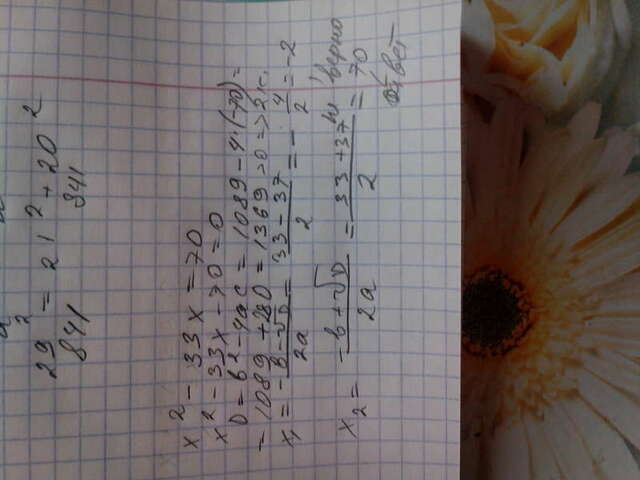 29² = 21² + 20²
841 841
x² - 33x = 70
x² - 33x - 70 = 0
D = b² - 4ac = 1089 - 4·(-70) =
= 1089 + 280 = 1369 > 0 => 2 к.
x₁ = -b-√D / 2a = 33-37 / 2 = - 4/2 = -2
x₂ = -b+√D / 2a = 33+37 / 2 = 70
верно
ответ